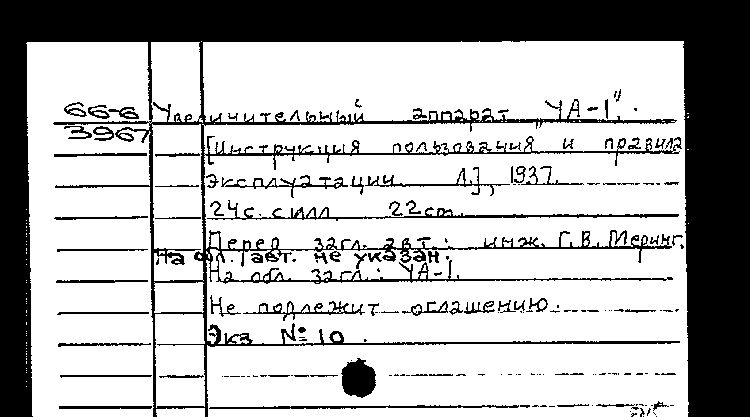 66-6 Увеличительный аппарат „УА-1".
3967
[Инструкция пользования и правила
эксплуатации. Л.], 1937.
24с. с илл. 22 cm.
Перед загл. авт.: инж. Г. В. Меринг.
На обл. авт. не указан.
На обл. загл.: УА-1.
Не подлежит оглашению.
Экз. № 10.